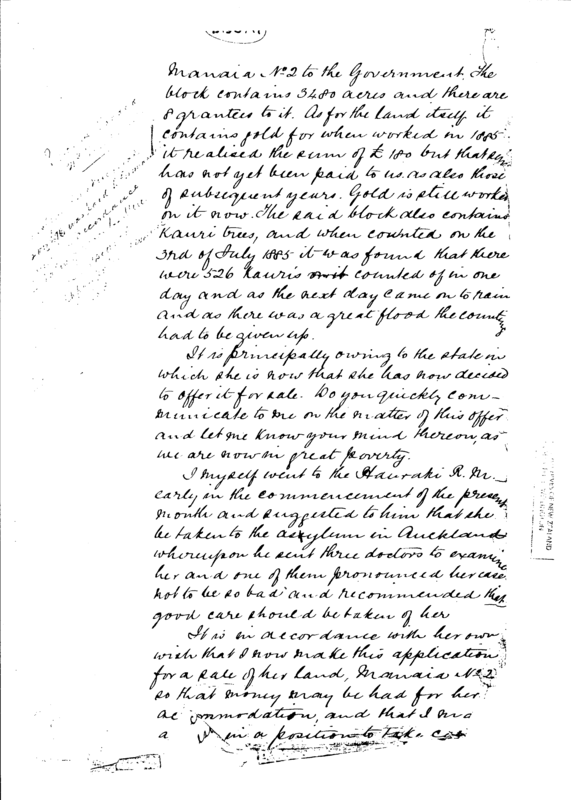 Manaia No 2 to the Government. The
block contains 3480 acres and there are
8 grantees to it. As for the land itself it
contains gold for when worked in 1885
it realised the sum of £180 but that sum
has not yet been paid to us. as also those
of subsequent years. Gold is still worked
on it now. The said block also contains
Kauri trees, and when counted on the
3rd of July 1885 it was found that there
were 526 Kauris counted of in one
day and as the next day came on to rain
and as there was a great flood the counting
had to be given up.
It is principally owing to the state in
which she is now that she has now decided
to offer it for sale. Do you quickly com-
municate to me on the matter of this offer
and let me know your mind thereon, as
we are now in great poverty.
I myself went to the Hauraki R. M.
early in the commencement of the present
month and suggested to him that she
be taken to the asylum in Auckland
whereupon he sent three doctors to examine
her and one of them pronounced her case
not to be so bad and recommended that
good care should be taken of her
It is in accordance with her own
wish that I now make this application
for a sale of her land, Manaia No 2
so that money may be had for her
and that I
in a position to take